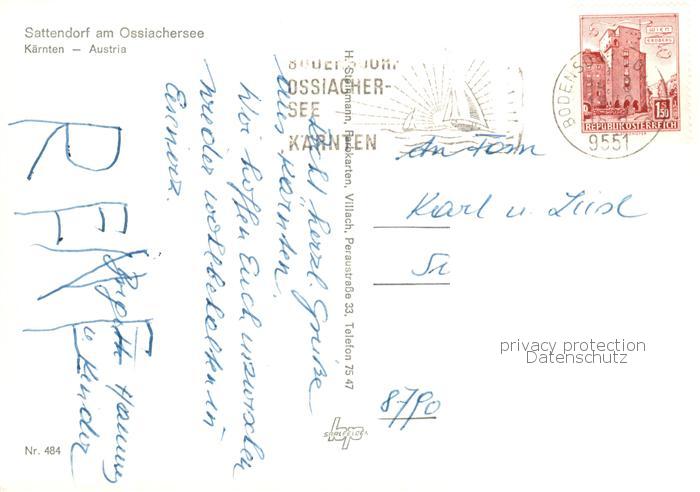 Sattendorf am Ossiachersee
Kärnten — Austria
BODENSDORF
OSSIACHER-
SEE
KÄRNTEN
WIEN
ERDBERG
1.50
REPUBLIK ÖSTERREICH
9551
An Fam
Karl u.
8790
Recht herzl. Grüße
aus Kärnten.
Wir hoffen Euch inzwischen
wieder wohlbehalten in
Eisenerz.
Hannes
u. Kinder
RENE
H. Steinmann, Farbkarten, Villach, Peraustraße 33, Telefon 75 47
Nr. 484
privacy protection
Datenschutz